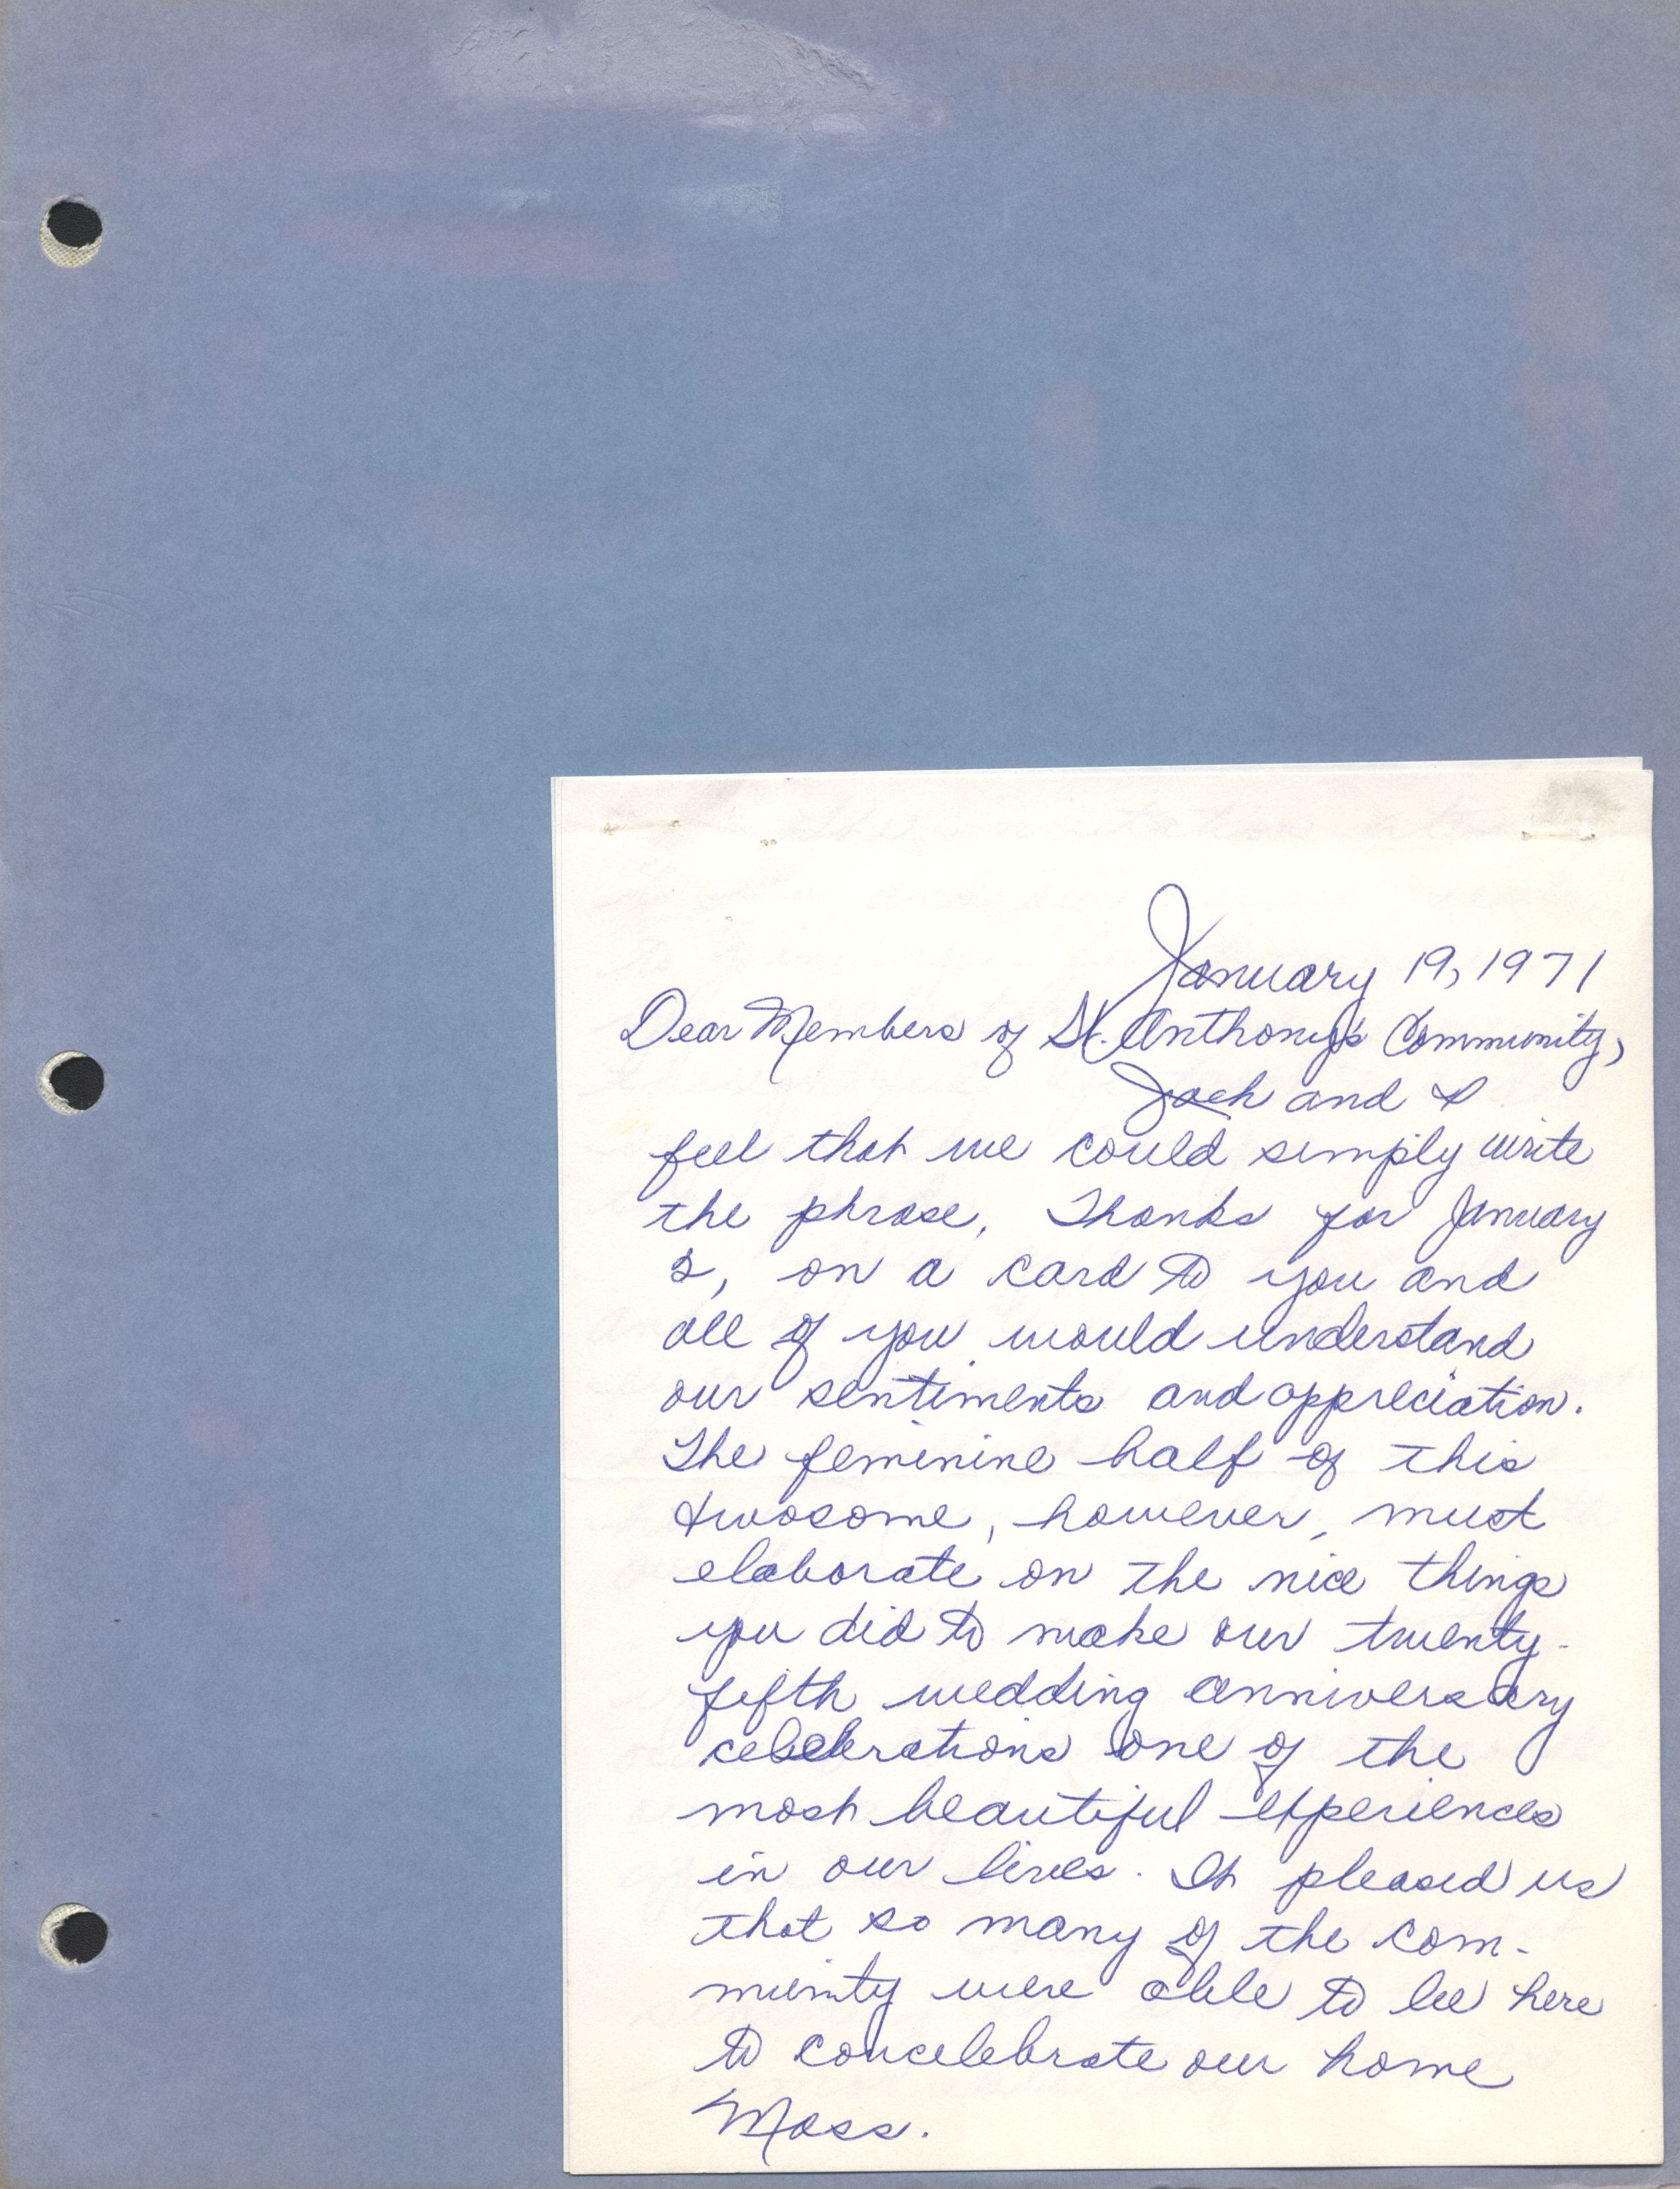 January 19, 1971
Dear Members of St. Anthony's Community,
Jack and I
feel that we could simply write
the phrase, Thanks for January
2, on a card to you and
all of you would understand
our sentiments and appreciation.
The feminine half of this
twosome, however, must
elaborate on the nice things
you did to make our twenty-
fifth wedding anniversary
celebrations one of the
most beautiful experiences
in our lives. It pleased us
that so many of the com-
munity were able to be here
to concelebrate our home
Mass.